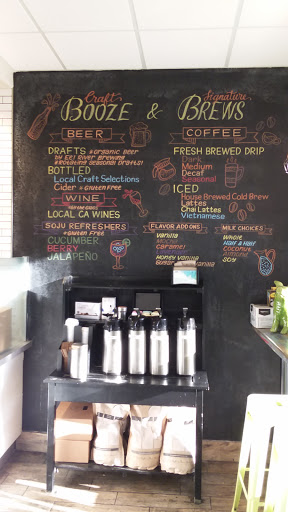 Craft
BOOZE & 
Signature
BREWS
BEER
DRAFTS *organic Beer
by Eel River Brewing
*Rotating seasonal Drafts!
BOTTLED
Local Craft Selections
Cider *Gluten Free
WINE
LOCAL CA WINES
SOJU REFRESHERS
*Gluten Free
CUCUMBER
BERRY
JALAPEÑO
COFFEE
FRESH BREWED DRIP
Dark
Medium
Decaf
Seasonal
ICED
House Brewed Cold Brew
Lattes
Chai Lattes
Vietnamese
FLAVOR ADD ONS
Vanilla
Mocha
Caramel
Honey Vanilla
MILK CHOICES
Whole
Half & Half
Coconut
Almond
SOY